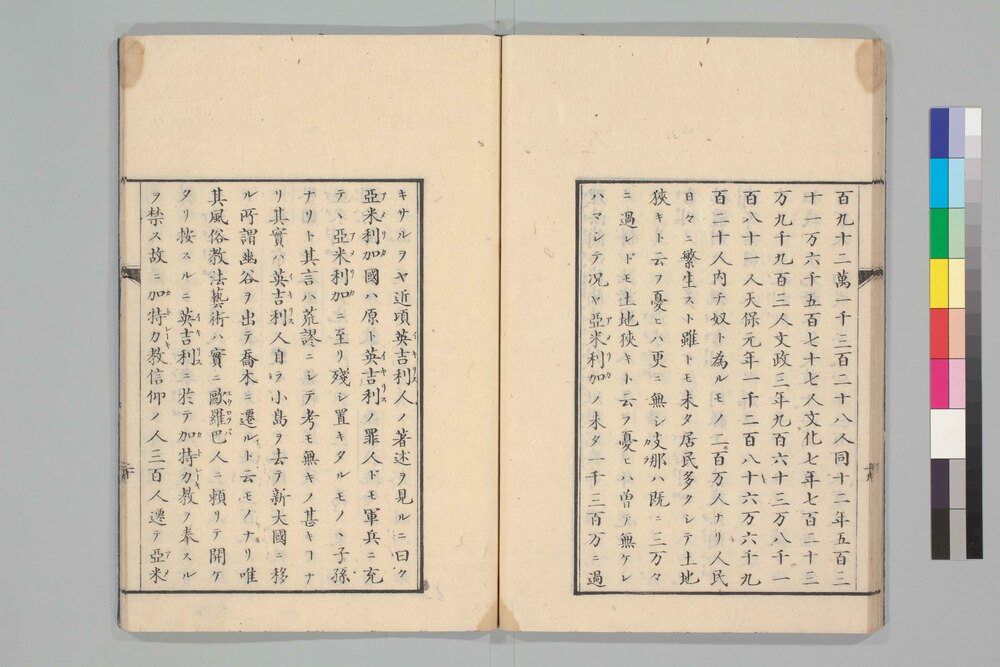 百九十二萬一千三百二十八人同十二年五百三
十一万六千五百七十七人文化七年七百二十三
万九千九百三人文政三年九百六十三万八千一
百八十一人天保元年一千二百八十六万六千九
百二十人内チ奴ト為ルモノ二百万人ナリ人民
日々ニ繁生スト雖トモ未タ居民多クシテ土地
狹キト云フ憂ヒハ更ニ無シ支那ハ既ニ三万々
ニ過レドモ土地狹キト云フ憂ヒハ曽テ無ケレ
バマシテ况ヤ亞米利加ノ未タ一千三百万ニ過
キサルヲヤ近項英吉利人ノ著述ヲ見ルニ曰ク
亞米利加國ハ原ト英吉利ノ罪人ドモ軍兵ニ充
テヽ亞米利加ニ至リ殘シ置キタルモノヽ子孫
ナリト其言ハ荒謬ニシテ考モ無キノ甚キコナ
リ其實ハ英吉利人自ラ小島ヲ去テ新大國ニ移
ル所謂幽谷ヲ出テ喬木ニ遷ルト云モノナリ唯
其風俗教法藝術ハ實ニ歐羅巴人ニ頼リテ開ケ
タリ按スルニ英吉利ニ於テ加特力教ヲ奉スル
ヲ禁ス故ニ加特力教信仰ノ人三百人遷テ亞米